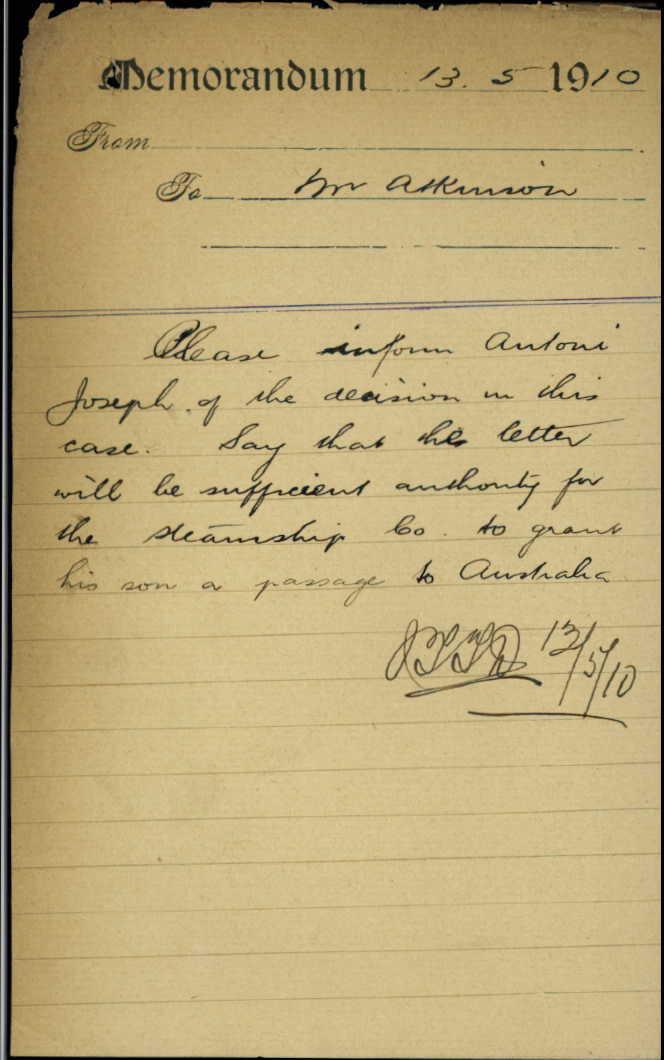 Memorandum 13. 5 1910
From
To Mr Atkinson
Please inform Antoni
Joseph. of the decision in this
case. Say that the letter
will be suffucient authority for
the steamship Co. to grant
his son a passage to Australia
13/5/10